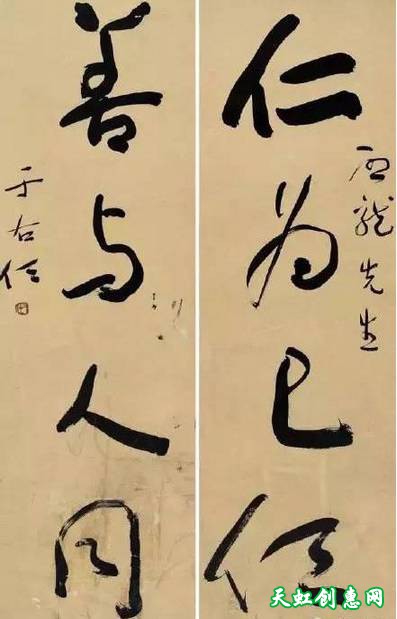 西龍先生
仁为己任
善与人同
于右任
天虹创惠网